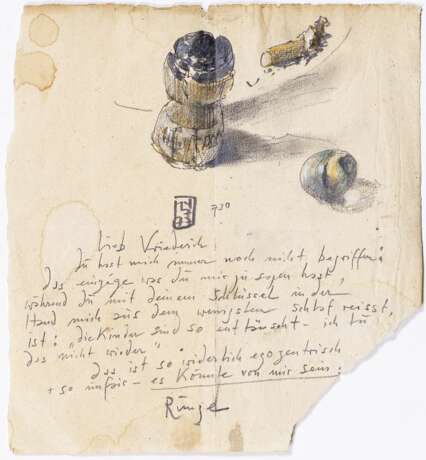 730
Lieb Friederich
du hast mich immer noch nicht begriffen:
das einzige was du mir zu sagen hast,
während du mit deinem Schlüssel in der
Hand mich aus dem wenigsten Schlaf reisst,
ist: "die Kinder sind so enttäuscht – ich tu
das nicht wieder"
das ist so widerlich egozentrisch
+ so unfair – es könnte von mir sein.
Runge